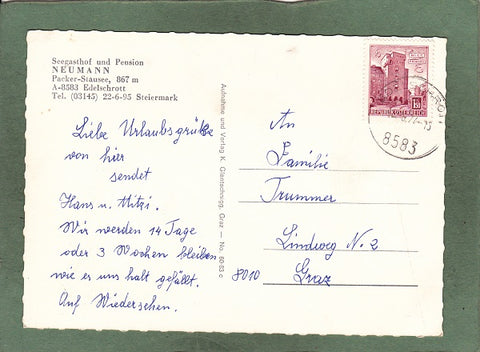 Seegasthof und Pension
NEUMANN
Packer-Stausee, 867 m
A-8583 Edelschrott
Tel. (03145) 22-6-95 Steiermark
Liebe Urlaubsgrüße
von hier
sendet
Hans u. Mitzi.
Wir werden 14 Tage
oder 3 Wochen bleiben
wie es uns halt gefällt.
Auf Wiedersehen.
Aufnahme und Verlag K. Glantschnigg, Graz — No. 60-83 c
REPUBLIK ÖSTERREICH
8583
An
Familie
Trummer
Lindweg N. 2
8010 Graz